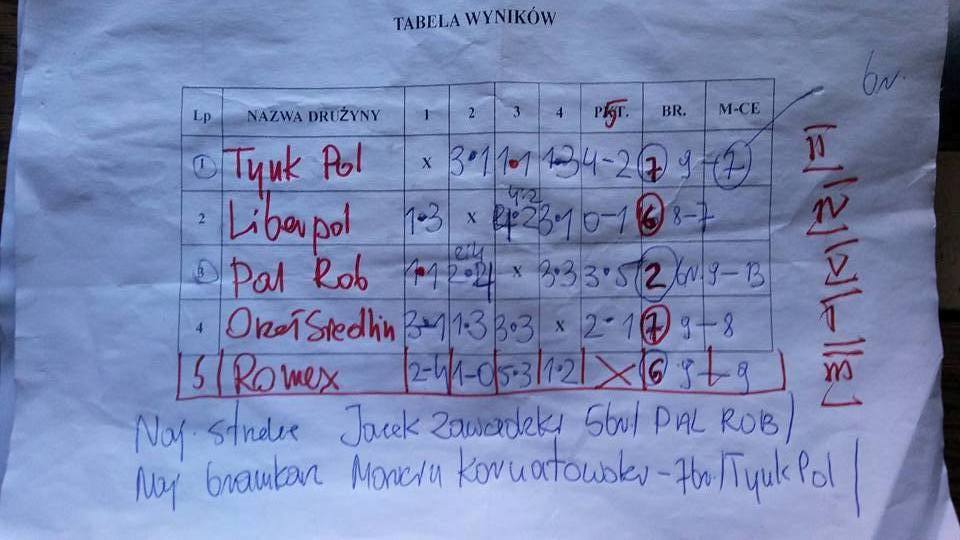 TABELA WYNIKÓW
6br.
Lp NAZWA DRUŻYNY 1 2 3 4 5 BR. M-CE
1 Tyuk Pol x 3·1 1·1 1-3 4-2 7 9-7 II
2 Liberpol 1·3 x 4:2 3·1 0-1 6 8-7 IV
3 Pal Rob 1·1 2·4 x 3·3 3·5 2 9-13 V
4 Orzeł Siedlin 3-1 1·3 3·3 x 2·1 7 9-8 I
5 Romex 2-4 1-0 5·3 1·2 X 6 9-9 III
Naj. strzelec Jacek Zawadzki 5br/ PAL ROB/
Naj bramkarz Marcin -7br./Tyuk Pol/